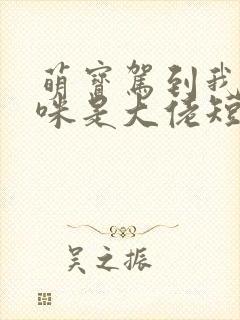 萌寳駕到我
咪是大佬短
吴之振